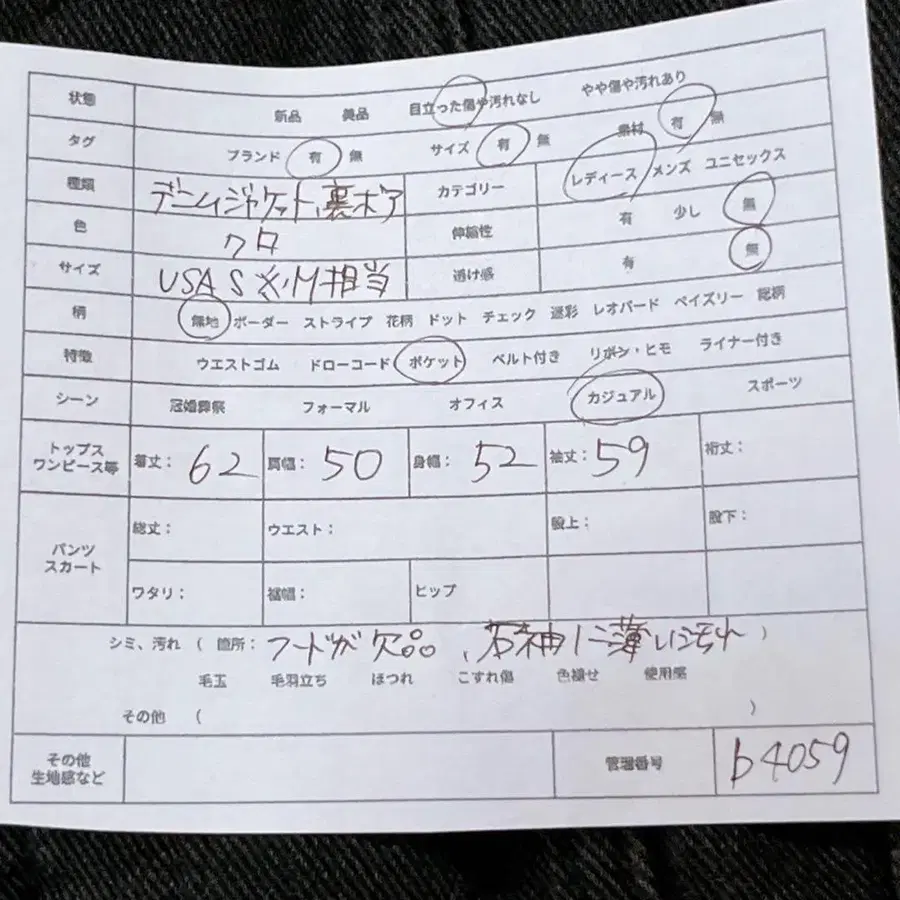 状態 新品 美品 目立った傷や汚れなし やや傷や汚れあり
タグ ブランド 有 無 サイズ 有 無 素材 有 無
種類 デニムジャケット、裏ボア カテゴリー レディース メンズ ユニセックス
色 クロ 伸縮性 有 少し 無
サイズ USA S ※M相当 透け感 有 無
柄 無地 ボーダー ストライプ 花柄 ドット チェック 迷彩 レオパード ペイズリー 総柄
特徴 ウエストゴム ドローコード ポケット ベルト付き リボン・ヒモ ライナー付き
シーン 冠婚葬祭 フォーマル オフィス カジュアル スポーツ
トップス
ワンピース等 着丈: 62 肩幅: 50 身幅: 52 袖丈: 59 裄丈:
パンツ
スカート 総丈: ウエスト: 股上: 股下:
ワタリ: 裾幅: ヒップ
シミ、汚れ ( 箇所: フードが欠品、右袖に薄い汚れ )
毛玉 毛羽立ち ほつれ こすれ傷 色褪せ 使用感
その他 ( )
その他
生地感など 管理番号 b4059